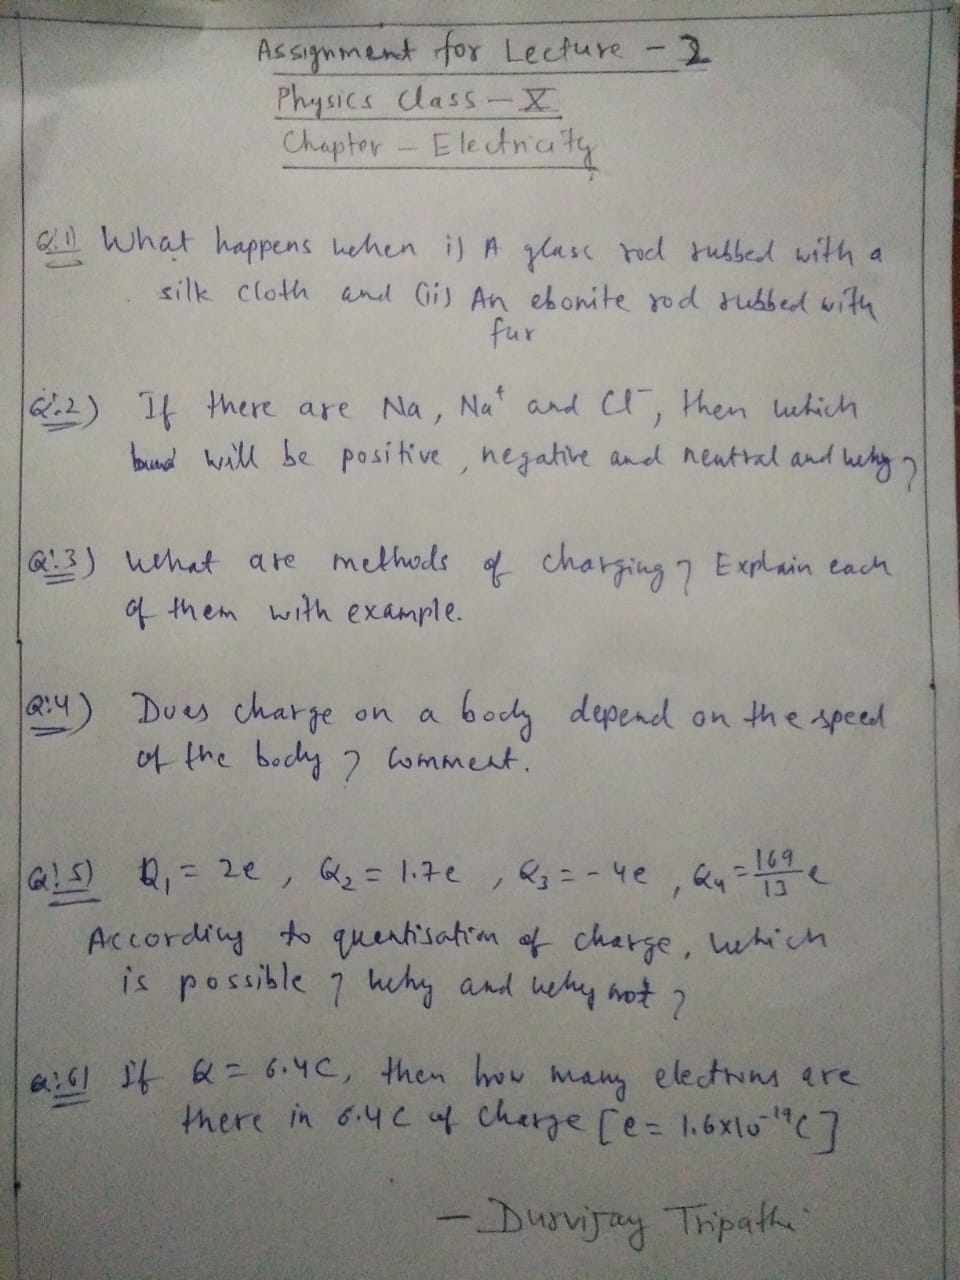 Assignment for Lecture - 2
Physics Class - X
Chapter - Electricity
Q.1) What happens when i) A glass rod rubbed with a
silk cloth and (ii) An ebonite rod rubbed with
fur
Q.2) If there are Na, Na⁺ and Cl⁻, then which
will be positive, negative and neutral and why?
Q.3) What are methods of charging? Explain each
of them with example.
Q.4) Does charge on a body depend on the speed
of the body? Comment.
Q.5) Q₁ = 2e, Q₂ = 1.7e, Q₃ = -4e, Q₄ = 169/13 e
According to quantisation of charge, which
is possible? Why and why not?
Q.6) If Q = 6.4C, then how many electrons are
there in 6.4C of charge [e = 1.6x10⁻¹⁹C]
- Durvijay Tripathi